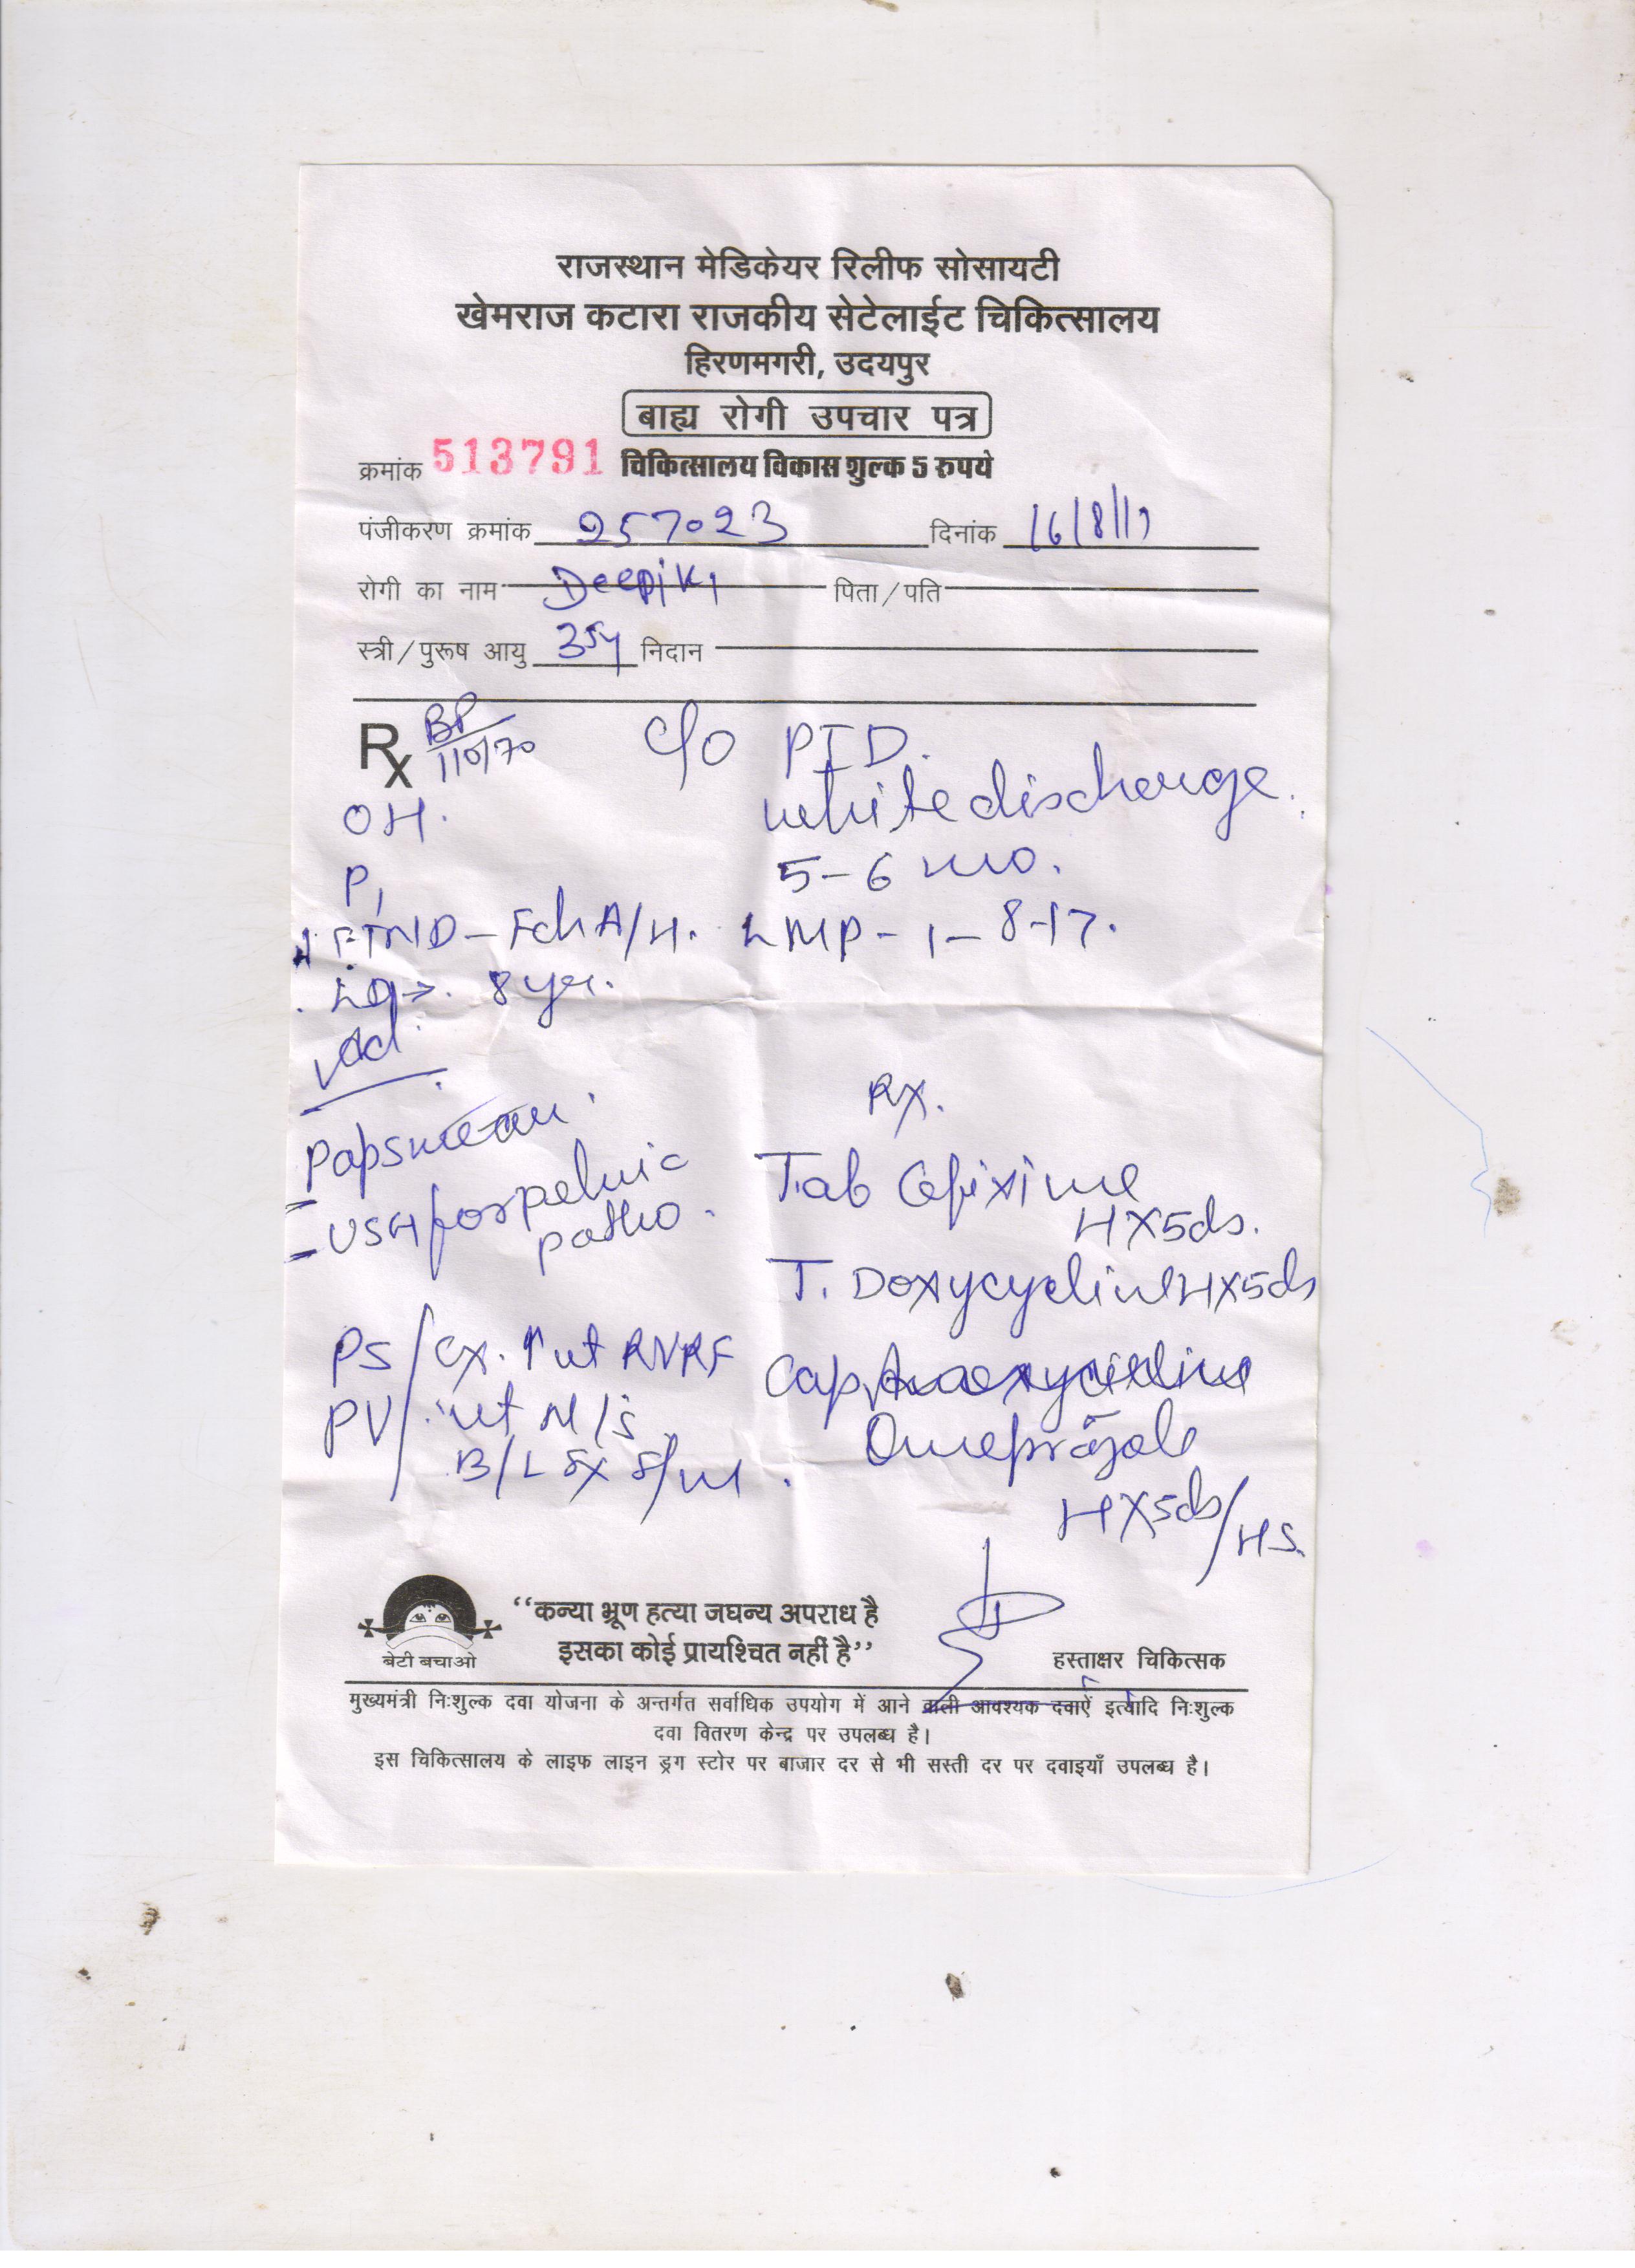 राजस्थान मेडिकेयर रिलीफ सोसायटी
खेमराज कटारा राजकीय सेटेलाईट चिकित्सालय
हिरणमगरी, उदयपुर
बाह्य रोगी उपचार पत्र
क्रमांक 513791 चिकित्सालय विकास शुल्क 5 रुपये
पंजीकरण क्रमांक 257023 दिनांक 16/8/17
रोगी का नाम पिता/पति
स्त्री/पुरूष आयु 35y निदान
Rx BP 110/70 c/o PID.
OH. white discharge.
P1 5-6 mo.
FTND - Fch A/H. LMP - 1-8-17.
LD → 8 yr.
Ad
Rx.
Papsmear.
Tab Cefixime
USG for pelvic
H X 5ds.
patho.
T. Doxycycline H X 5ds
PS/ Cx. ut RVRF
Cap
PV/ ut N/S
Omeprazole
B/L Fx F/m.
H X 5ds/HS.
बेटी बचाओ
“कन्या भ्रूण हत्या जघन्य अपराध है
इसका कोई प्रायश्चित नहीं है”
हस्ताक्षर चिकित्सक
मुख्यमंत्री निःशुल्क दवा योजना के अन्तर्गत सर्वाधिक उपयोग में आने वाली आवश्यक दवाऐं इत्यादि निःशुल्क
दवा वितरण केन्द्र पर उपलब्ध है।
इस चिकित्सालय के लाइफ लाइन ड्रग स्टोर पर बाजार दर से भी सस्ती दर पर दवाइयाँ उपलब्ध है।